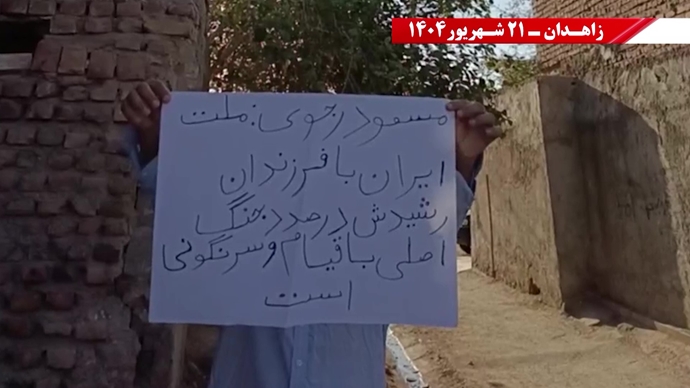 زاهـدان ـ ۲۱ شهریور ۱۴۰۴
مسعود رجوی: ملت
ایران با فرزندان
رشیدش در صدد جنگ
اصلی با قیام و سرنگونی
است